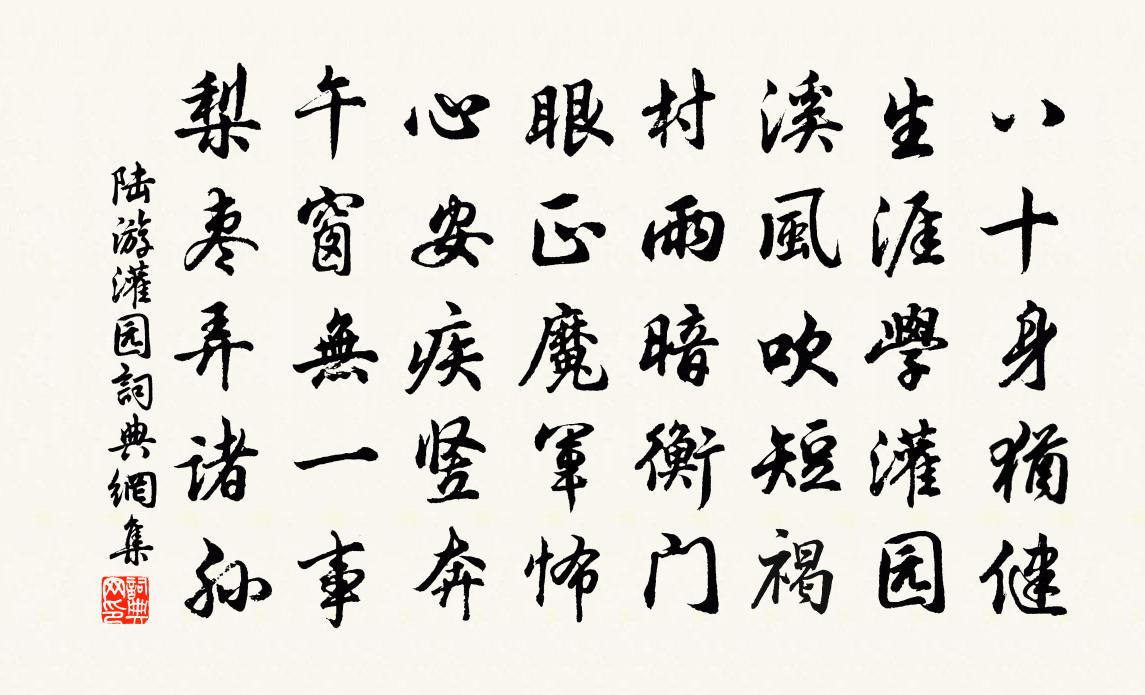 八十身猶健
生涯學灌园
溪風吹短褐
村雨暗衡门
眼正魔軍怖
心安疾竖奔
午窗無一事
梨枣弄诸孙
陆游灌园詞典網集
詞典網印